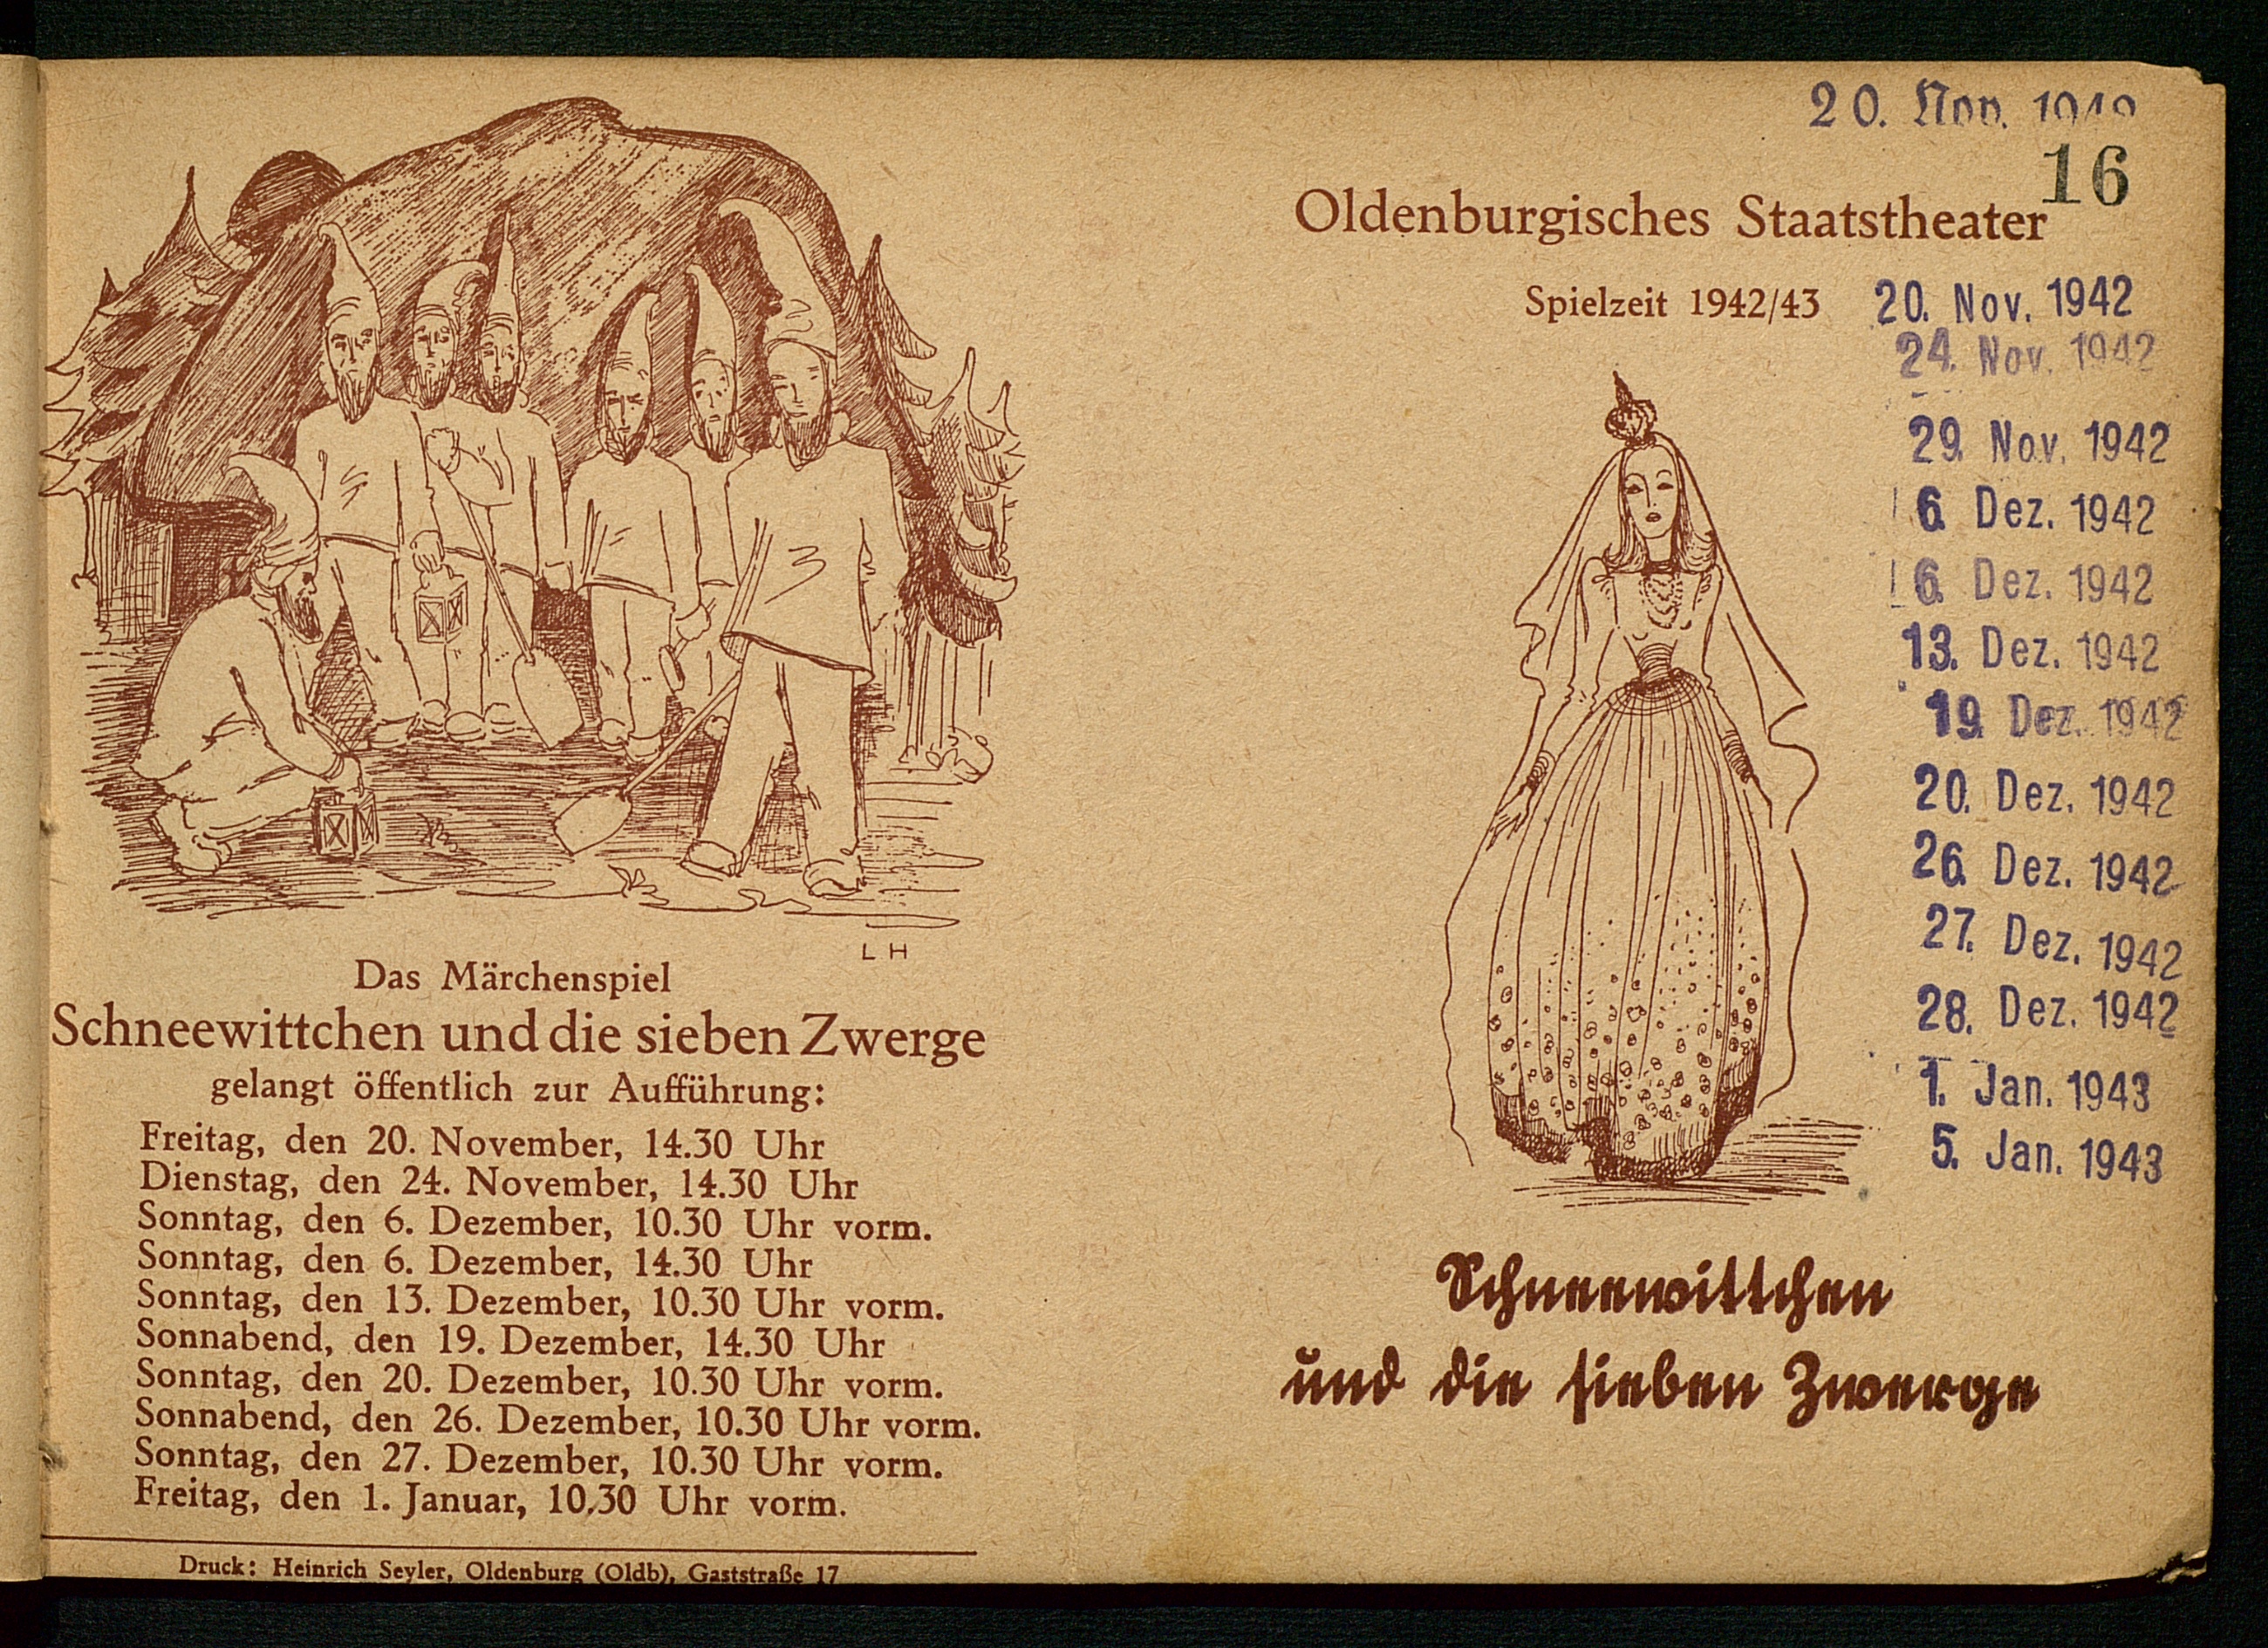 L H
Das Märchenspiel
Schneewittchen und die sieben Zwerge
gelangt öffentlich zur Aufführung:
Freitag, den 20. November, 14.30 Uhr
Dienstag, den 24. November, 14.30 Uhr
Sonntag, den 6. Dezember, 10.30 Uhr vorm.
Sonntag, den 6. Dezember, 14.30 Uhr
Sonntag, den 13. Dezember, 10.30 Uhr vorm.
Sonnabend, den 19. Dezember, 14.30 Uhr
Sonntag, den 20. Dezember, 10.30 Uhr vorm.
Sonnabend, den 26. Dezember, 10.30 Uhr vorm.
Sonntag, den 27. Dezember, 10.30 Uhr vorm.
Freitag, den 1. Januar, 10.30 Uhr vorm.
Druck: Heinrich Seyler, Oldenburg (Oldb), Gaststraße 17
20. Nov.
16
Oldenburgisches Staatstheater
Spielzeit 1942/43
20. Nov. 1942
24. Nov. 1942
29. Nov. 1942
6. Dez. 1942
6. Dez. 1942
13. Dez. 1942
19. Dez. 1942
20. Dez. 1942
26. Dez. 1942
27. Dez. 1942
28. Dez. 1942
1. Jan. 1943
5. Jan. 1943
Schneewittchen
und die sieben Zwerge